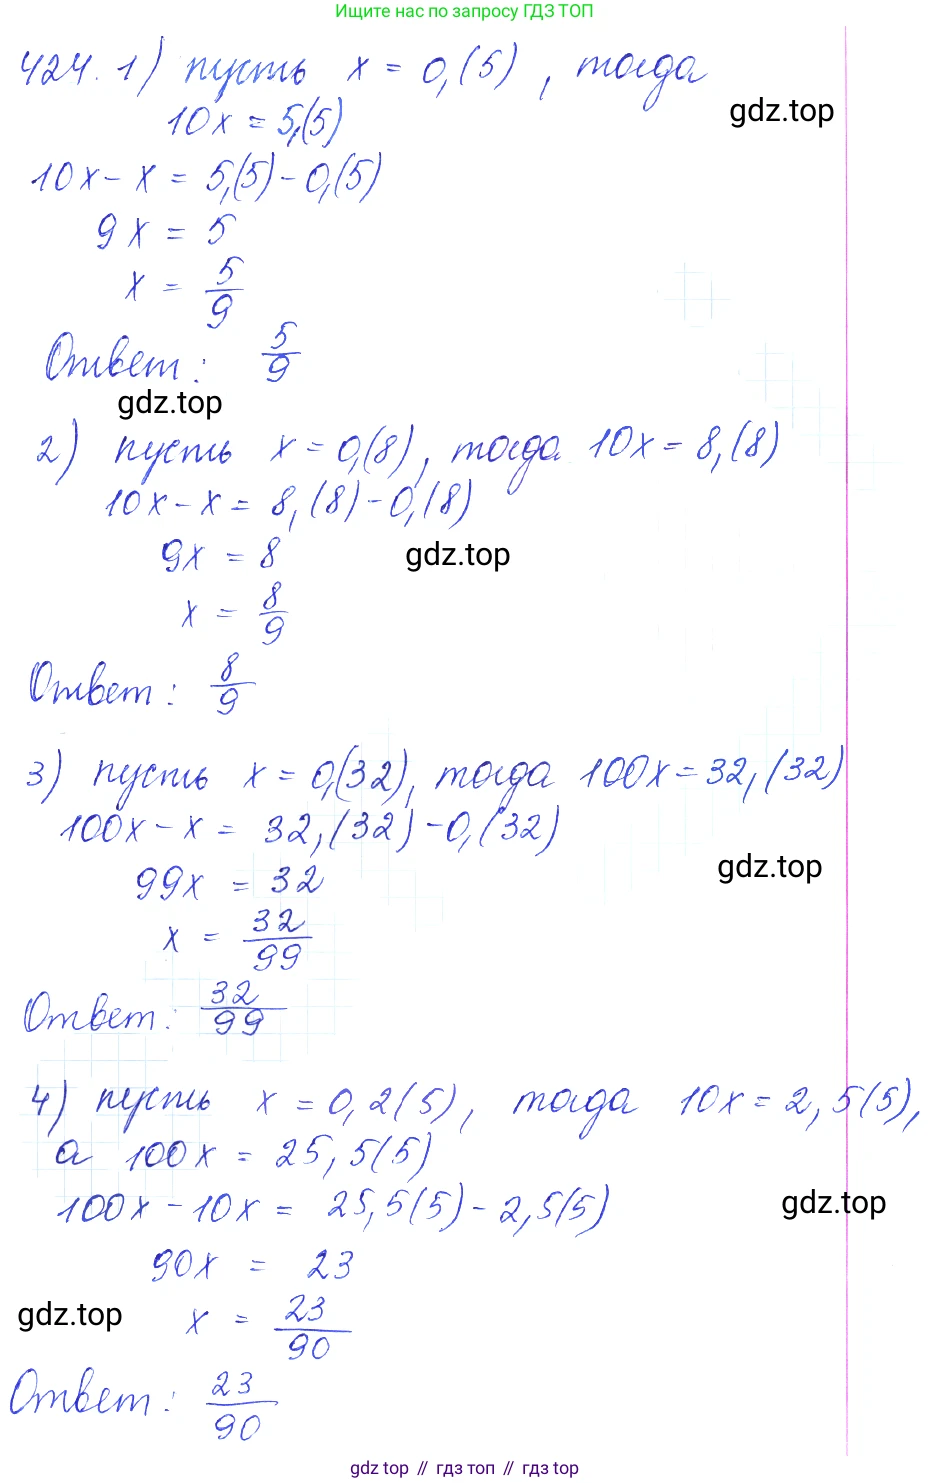 Ищите нас по запросу ГДЗ ТОП
424. 1) пусть x = 0,(5) , тогда
gdz.top
10x = 5,(5)
10x - x = 5,(5) - 0,(5)
9x = 5
x = 5/9
Ответ: 5/9
gdz.top
2) пусть x = 0,(8), тогда 10x = 8,(8)
10x - x = 8,(8) - 0,(8)
9x = 8
gdz.top
x = 8/9
Ответ: 8/9
3) пусть x = 0,(32), тогда 100x = 32,(32)
100x - x = 32,(32) - 0,(32)
gdz.top
99x = 32
x = 32/99
Ответ: 32/99
4) пусть x = 0,2(5), тогда 10x = 2,5(5),
а 100x = 25,5(5)
100x - 10x = 25,5(5) - 2,5(5)
gdz.top
90x = 23
gdz.top
x = 23/90
Ответ: 23/90
gdz top // гдз топ // gdz top